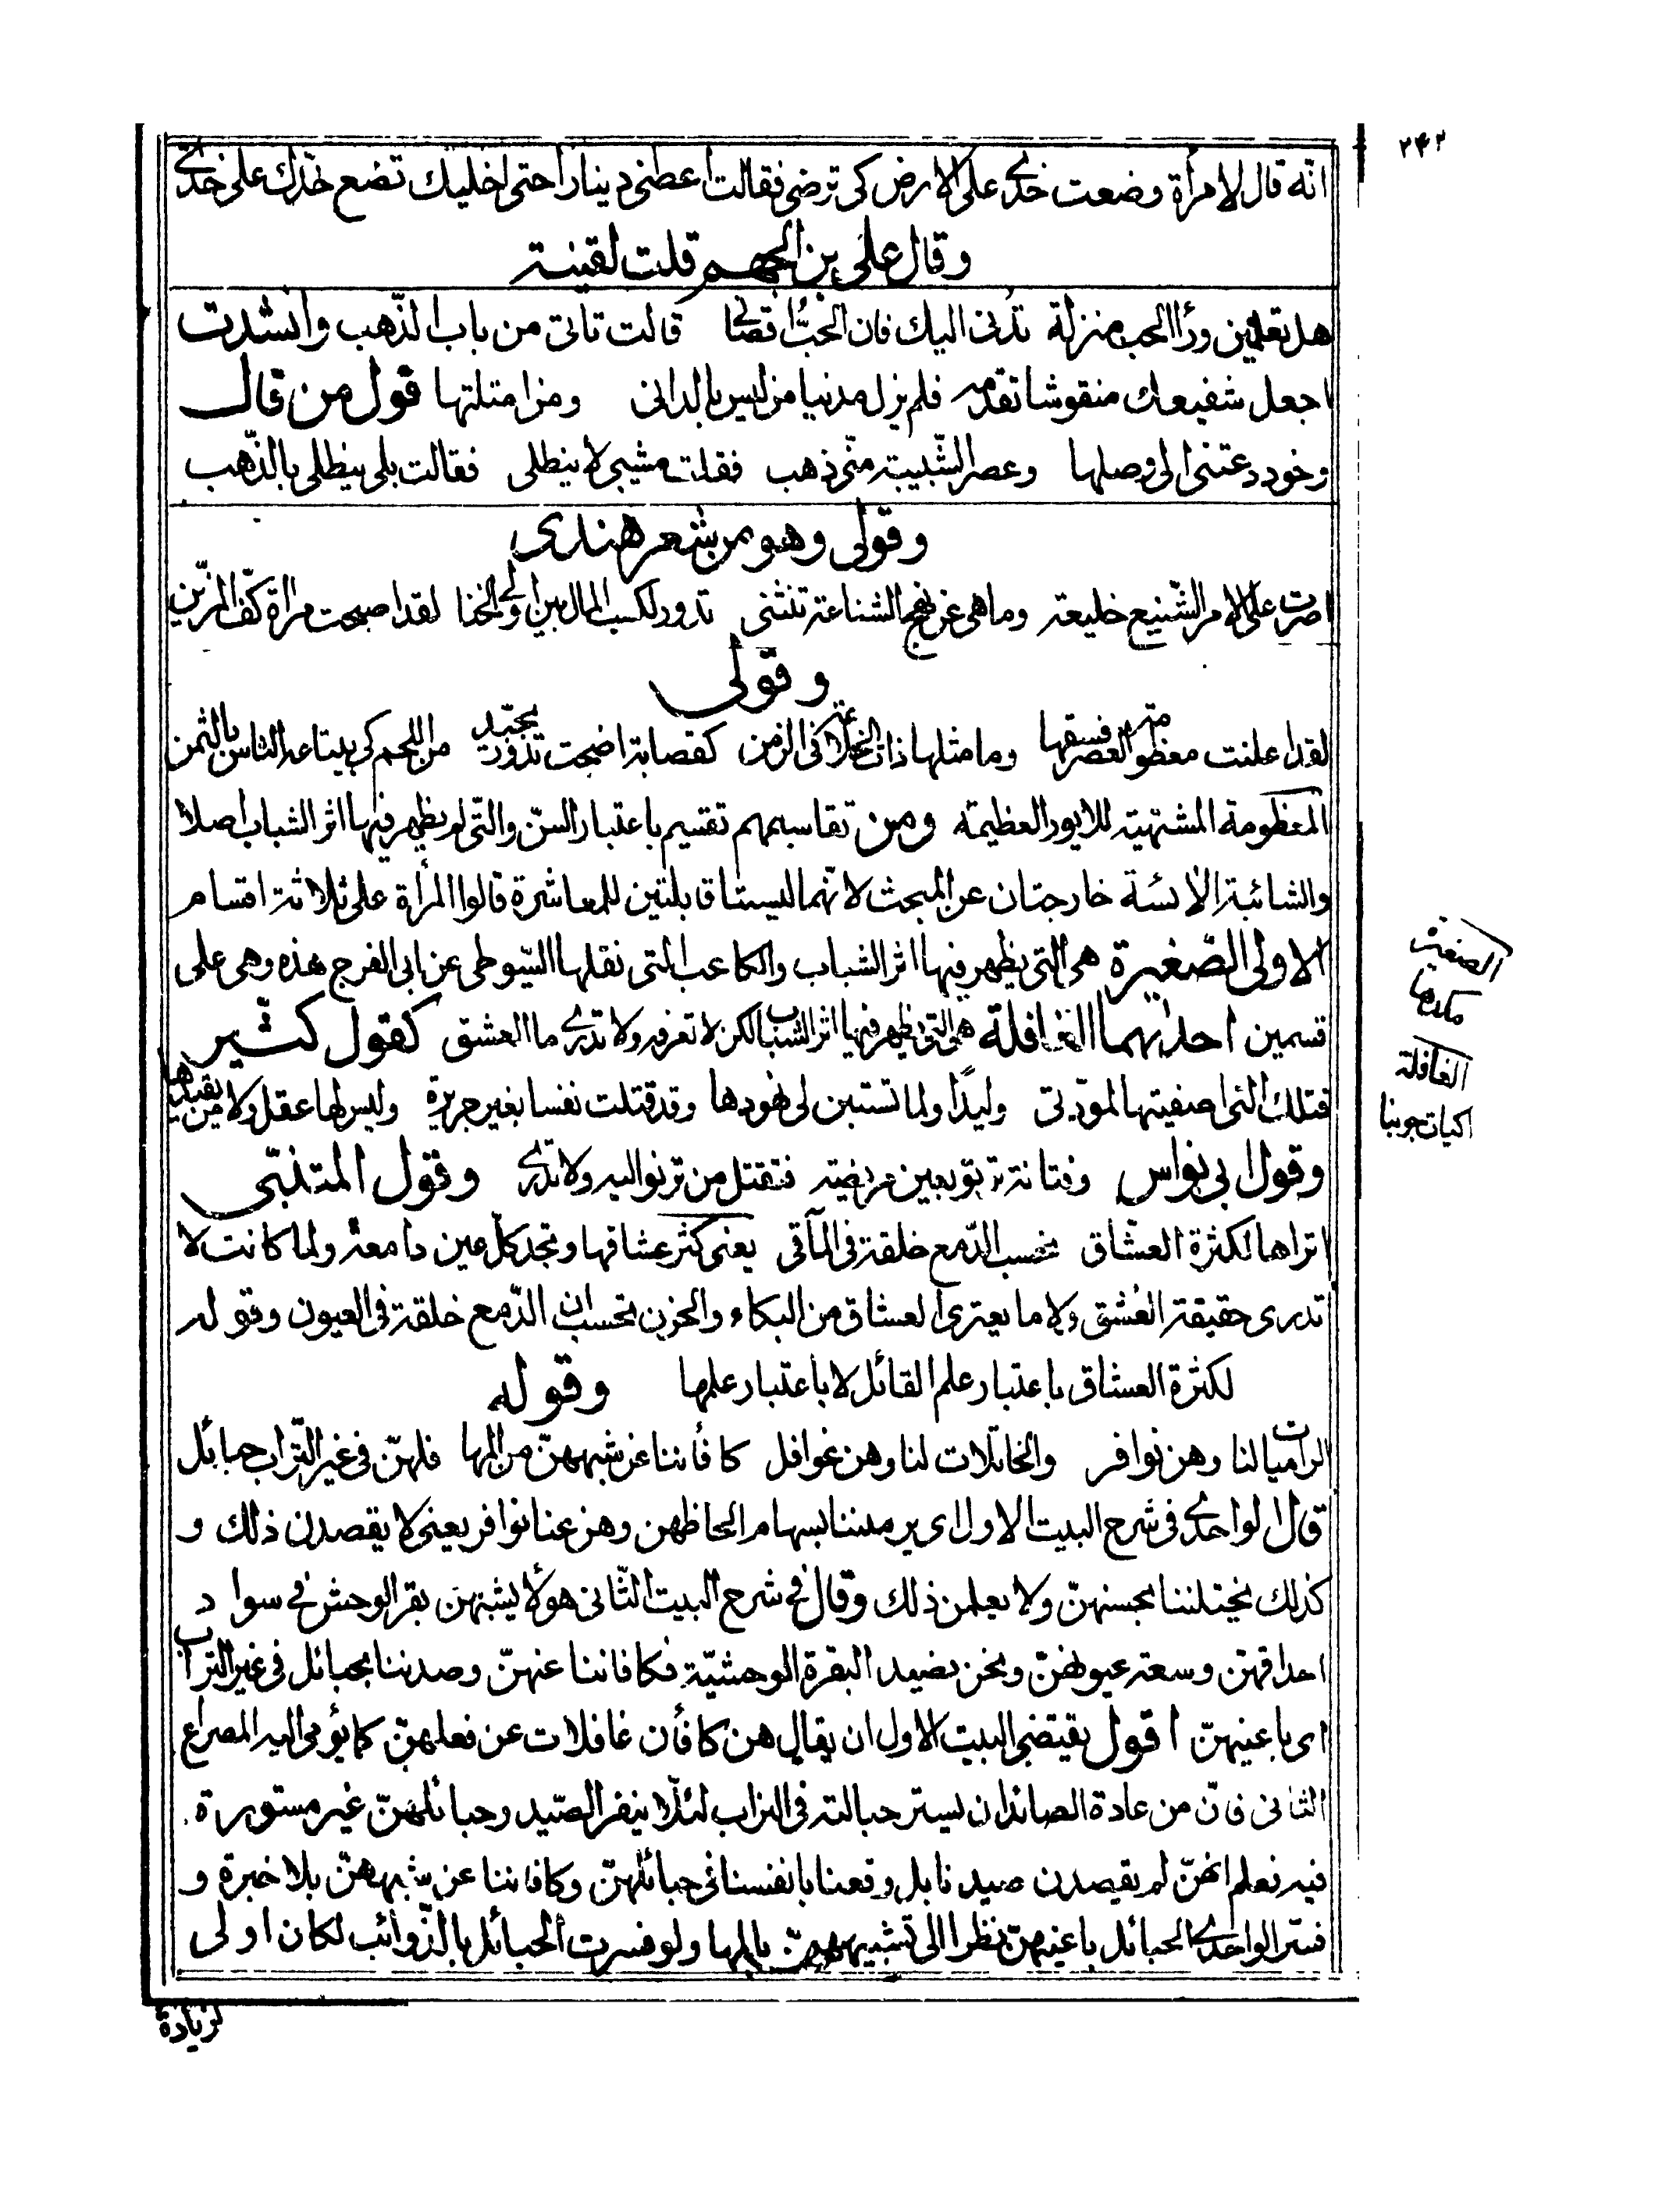 ٢٤٢
انّه قال لامرأة وضعت خدّي على الارض كي ترضى فقالت اعطني دينارا حتى اخليك تضع خدّك على خدّي
وقال علي بن الجهم قلت لقينة
هل تعلمين وراء الحب منزلة تدني اليك فان الحبّ اقصاني قالت تأتي من باب الذّهب وانشدت
اجعل شفيعك منقوشا تقدمه فلم يزل مدنيا من ليس بالداني ومن امثلتها قول من قال
وخود دعتني الى وصلها وعصر الشّبيبة منّي ذهب فقلت مشيبي لا ينطلي فقالت بلى ينطلي بالذّهب
وقولي وهو من شعر هنارى
اصرت على الامر الشّنيع خليعة وما هي عن نهج الشناعة تنثني تدور لكسب المال بين اولي الخنا لقد اصبحت مرأة كفّ المزيّن
وقولي
لقد اعلنت معظومة العصر فسقها وما مثلها ذات في الزمن كقصابة اضحت تدور من اللحم كي يبتاعه الناس بالثمن
المعظومة المشتهية للايور العظيمة ومن تقاسيمهم تقسيم باعتبار السنّ والتي لم يظهر فيها اثر الشباب اصلا
والشائبة الآئسة خارجتان عن المبحث لانهما ليستا قابلتين للمعاشرة قالوا المرأة على ثلاثة اقسام
الاولى الصّغيرة هي التي يظهر فيها اثر الشباب والكاعب التي نقلها السّيوطي عن ابي الفرج هذه وهي على
قسمين احداهما الغافلة هي التي يظهر فيها اثر الشباب لكن لا تعرفه ولا تدري ما العشق كقول كثير
فتلك التي اصفيتها المودّتي وليدًا ولما تستبن لي نهودها وقد قتلت نفسا بغير جريرة وليس لها عقل ولا من يقيدها
وقول ابي نواس وفتانة ترنو بعين مريضة فتقتل من ترنو اليه ولا تدري وقول المتنبّي
اتراها لكثرة العشّاق تحسب الدّمع خلقة في المآقي يعني كثر عشاقها وتجد كلّ عين دامعة ولما كانت لا
تدري حقيقة العشق ولا ما يعتري العشاق من البكاء والحزن تحسب ان الدّمع خلقة في العيون وقوله
لكثرة العشاق باعتبار علم القائل لا باعتبار علمها وقوله
الراميات لنا وهن نوافر والخاتلات لنا وهن غوافل كافأننا عن شبههنّ من المها فلهنّ في غير التّراب حبائل
قال الواحدي في شرح البيت الاول اي يرميننا بسهام الحاظهن وهن عنا نوافر يعني لا يقصدن ذلك و
كذلك يختلننا بحسنهنّ ولا يعلمن ذلك وقال في شرح البيت الثّاني هؤلا يشبهن بقر الوحش في سواد
احداقهنّ وسعة عيونهنّ ونحن نصيد البقرة الوحشيّة فكافاننا عنهنّ وصدننا بحبائل في غير التراب
اى باعينهنّ اقول يقتضي البيت الاول ان يقال هن كافأن غافلات عن فعلهنّ كما يؤمي اليه المصراع
الثاني فانّ من عادة الصائد ان يستر حبالته في التراب لئلّا ينفر الصّيد وحبائلهنّ غير مستورة
فيه فعلم انهنّ لم يقصدن صيدنا بل وقعنا بانفسنا في حبائلهنّ وكافاننا عن شبههنّ بلا خبرة و
فسّر الواحدي الحبائل باعينهنّ نظرا الى تشبيههنّ بالمها ولو فسرت الحبائل بالذّوائب لكان اولى
لزيادة
الصغيرة
الغافلة